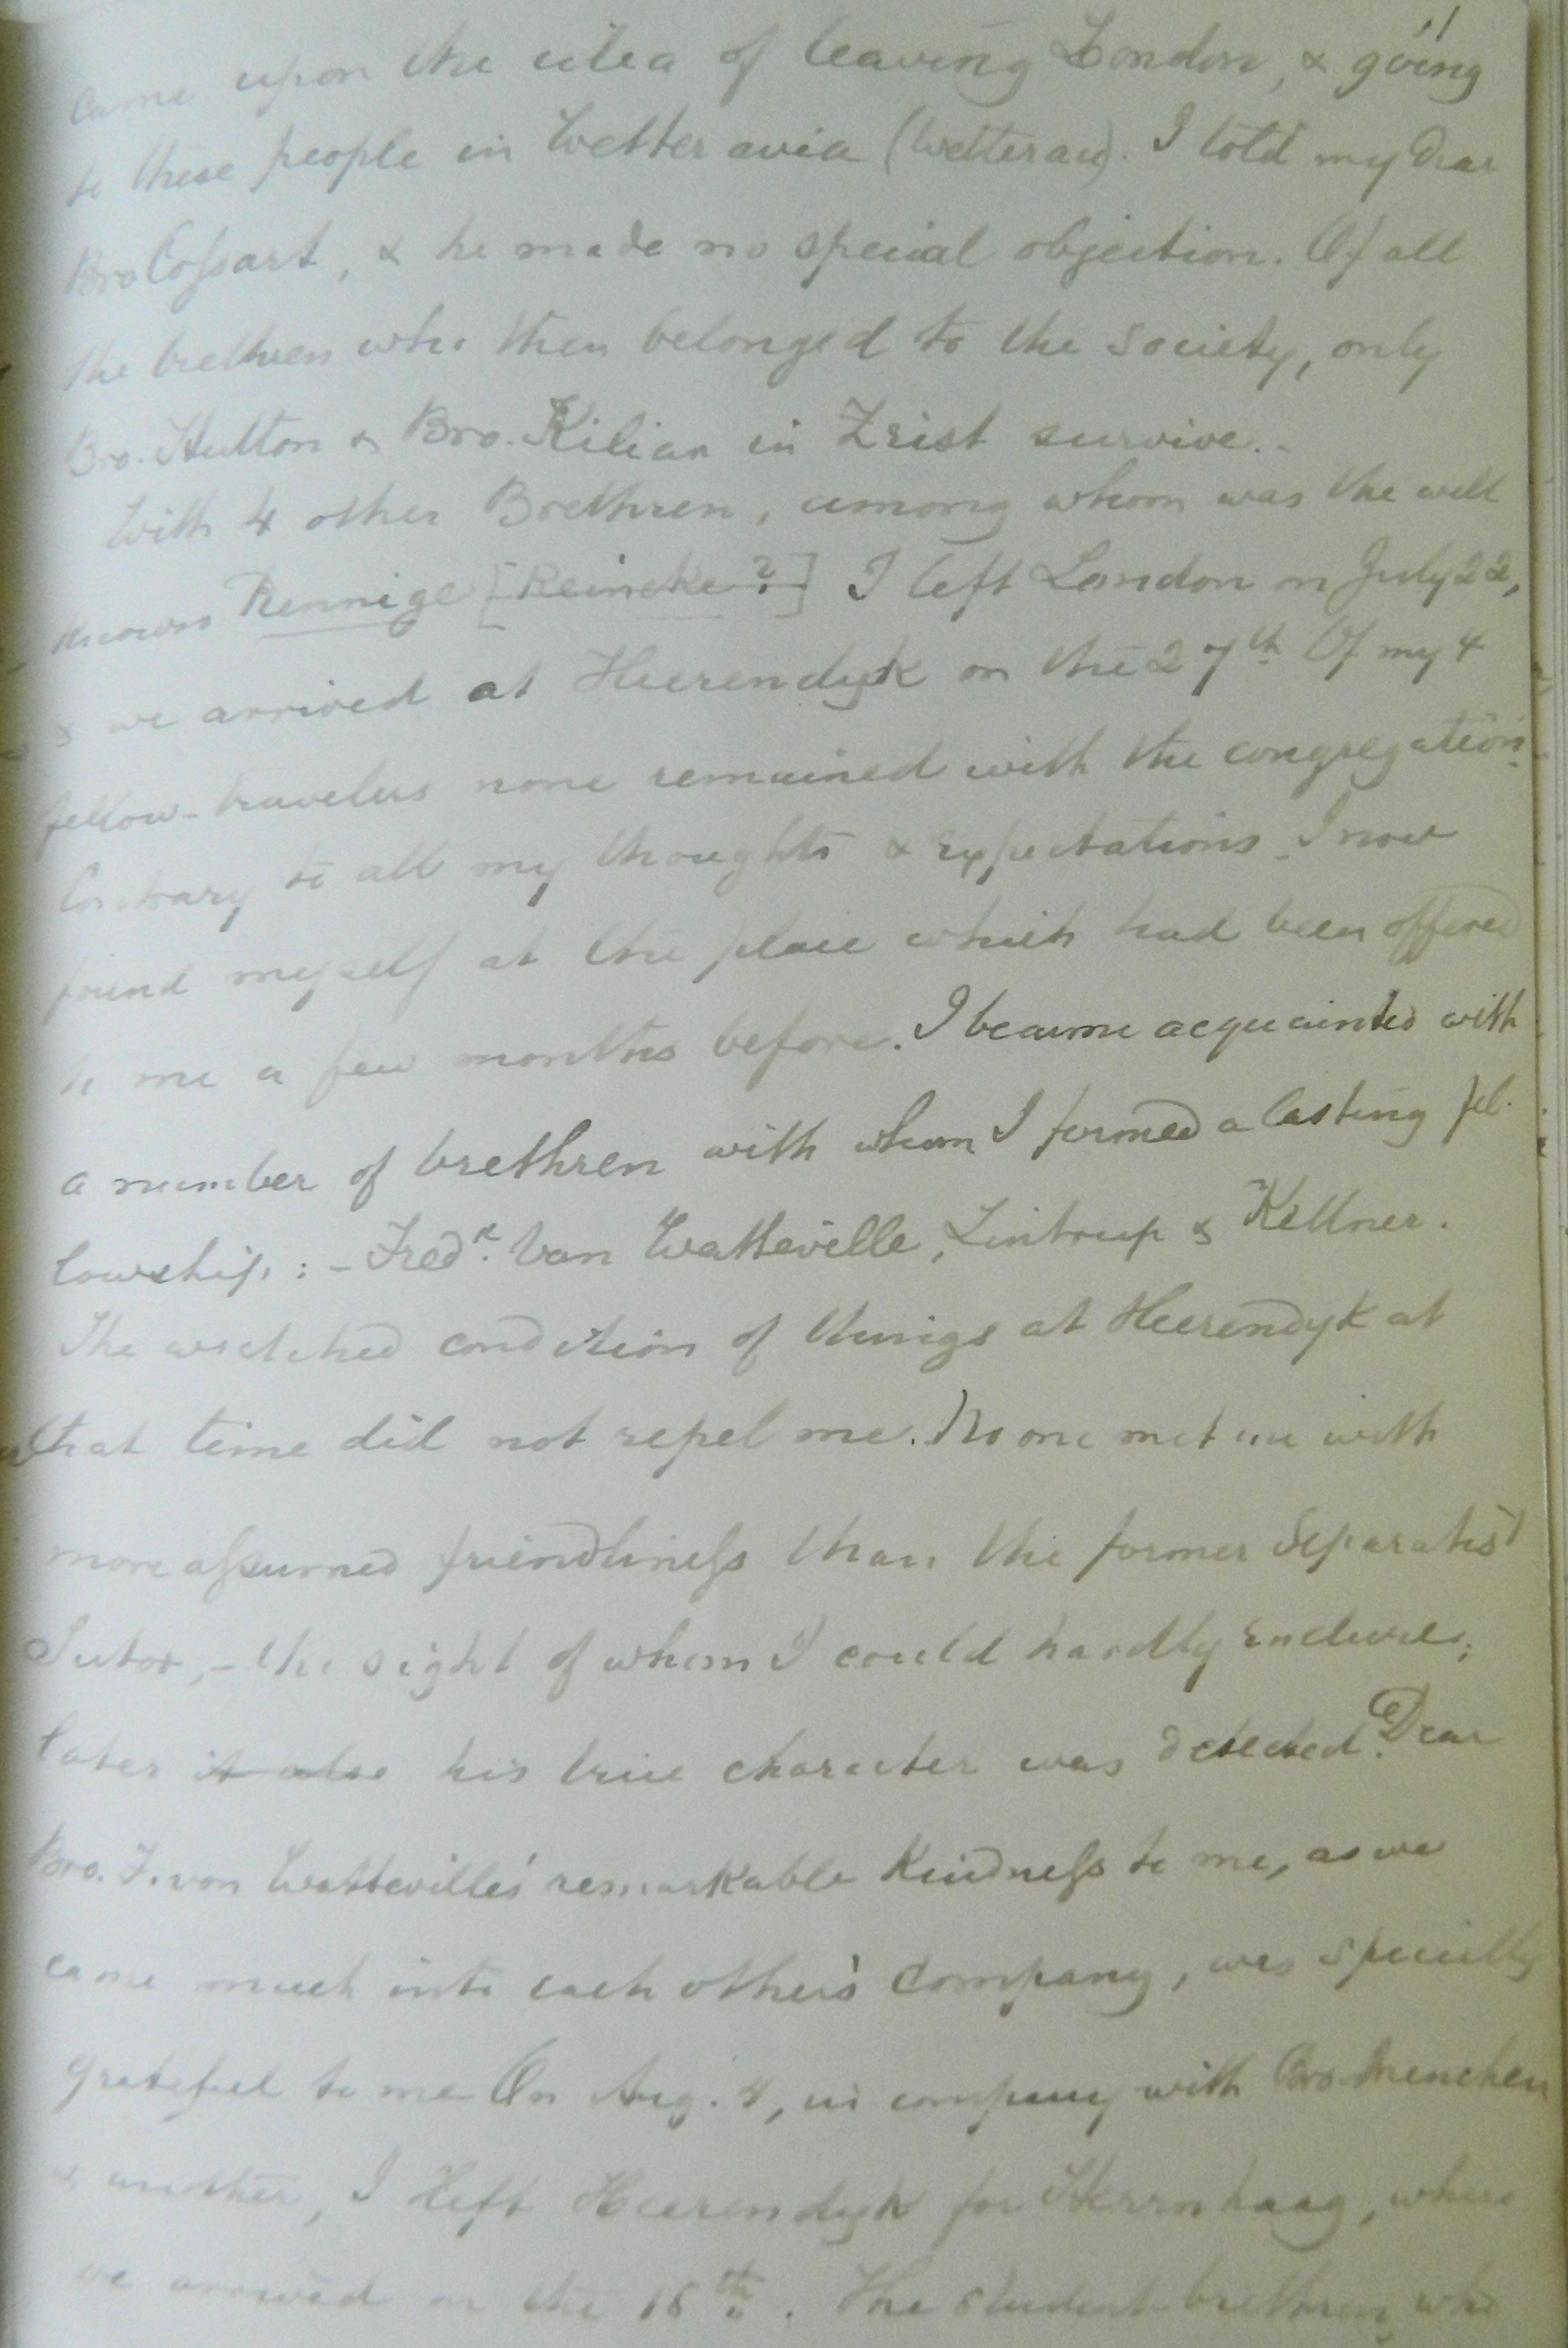 came upon the idea of leaving London, & going
to these people in Wetteravia (Wetterau). I told my Dear
Bro Coſsart, & he made no special objection. Of all
the brethren who then belonged to the Society, only
Bro. Hutton & Bro. Kilian in Zeist survive.
With 4 other Brethren, among whom was the well
known Rennige [Reincke?] I left London on July 22,
& we arrived at Heerendyk on the 27th. Of my 4
fellow-travelers none remained with the congregation.
Contrary to all my thoughts & expectations I now
found myself at the place which had been offered
to me a few months before. I became acquainted with
a number of brethren with whom I formed a lasting fel-
lowship: - Fredk. Von Watteville, Lintrup & Kellner.
The wretched condition of things at Heerendyk at
that time did not repel me. No one met me with
more aſsumed friendlineſs than the former Separatist
Sutor, - the sight of whom I could hardly endure;
later it also his true character was detected. Dear
Bro. F. von Watteville's remarkable kindneſs to me, as we
came much into each other's company, was specially
grateful to me On Aug. 4, in company with Bro
& another, I left Heerendyk for Herrnhaag, where
we arrived on the 15th. The student brethren, who